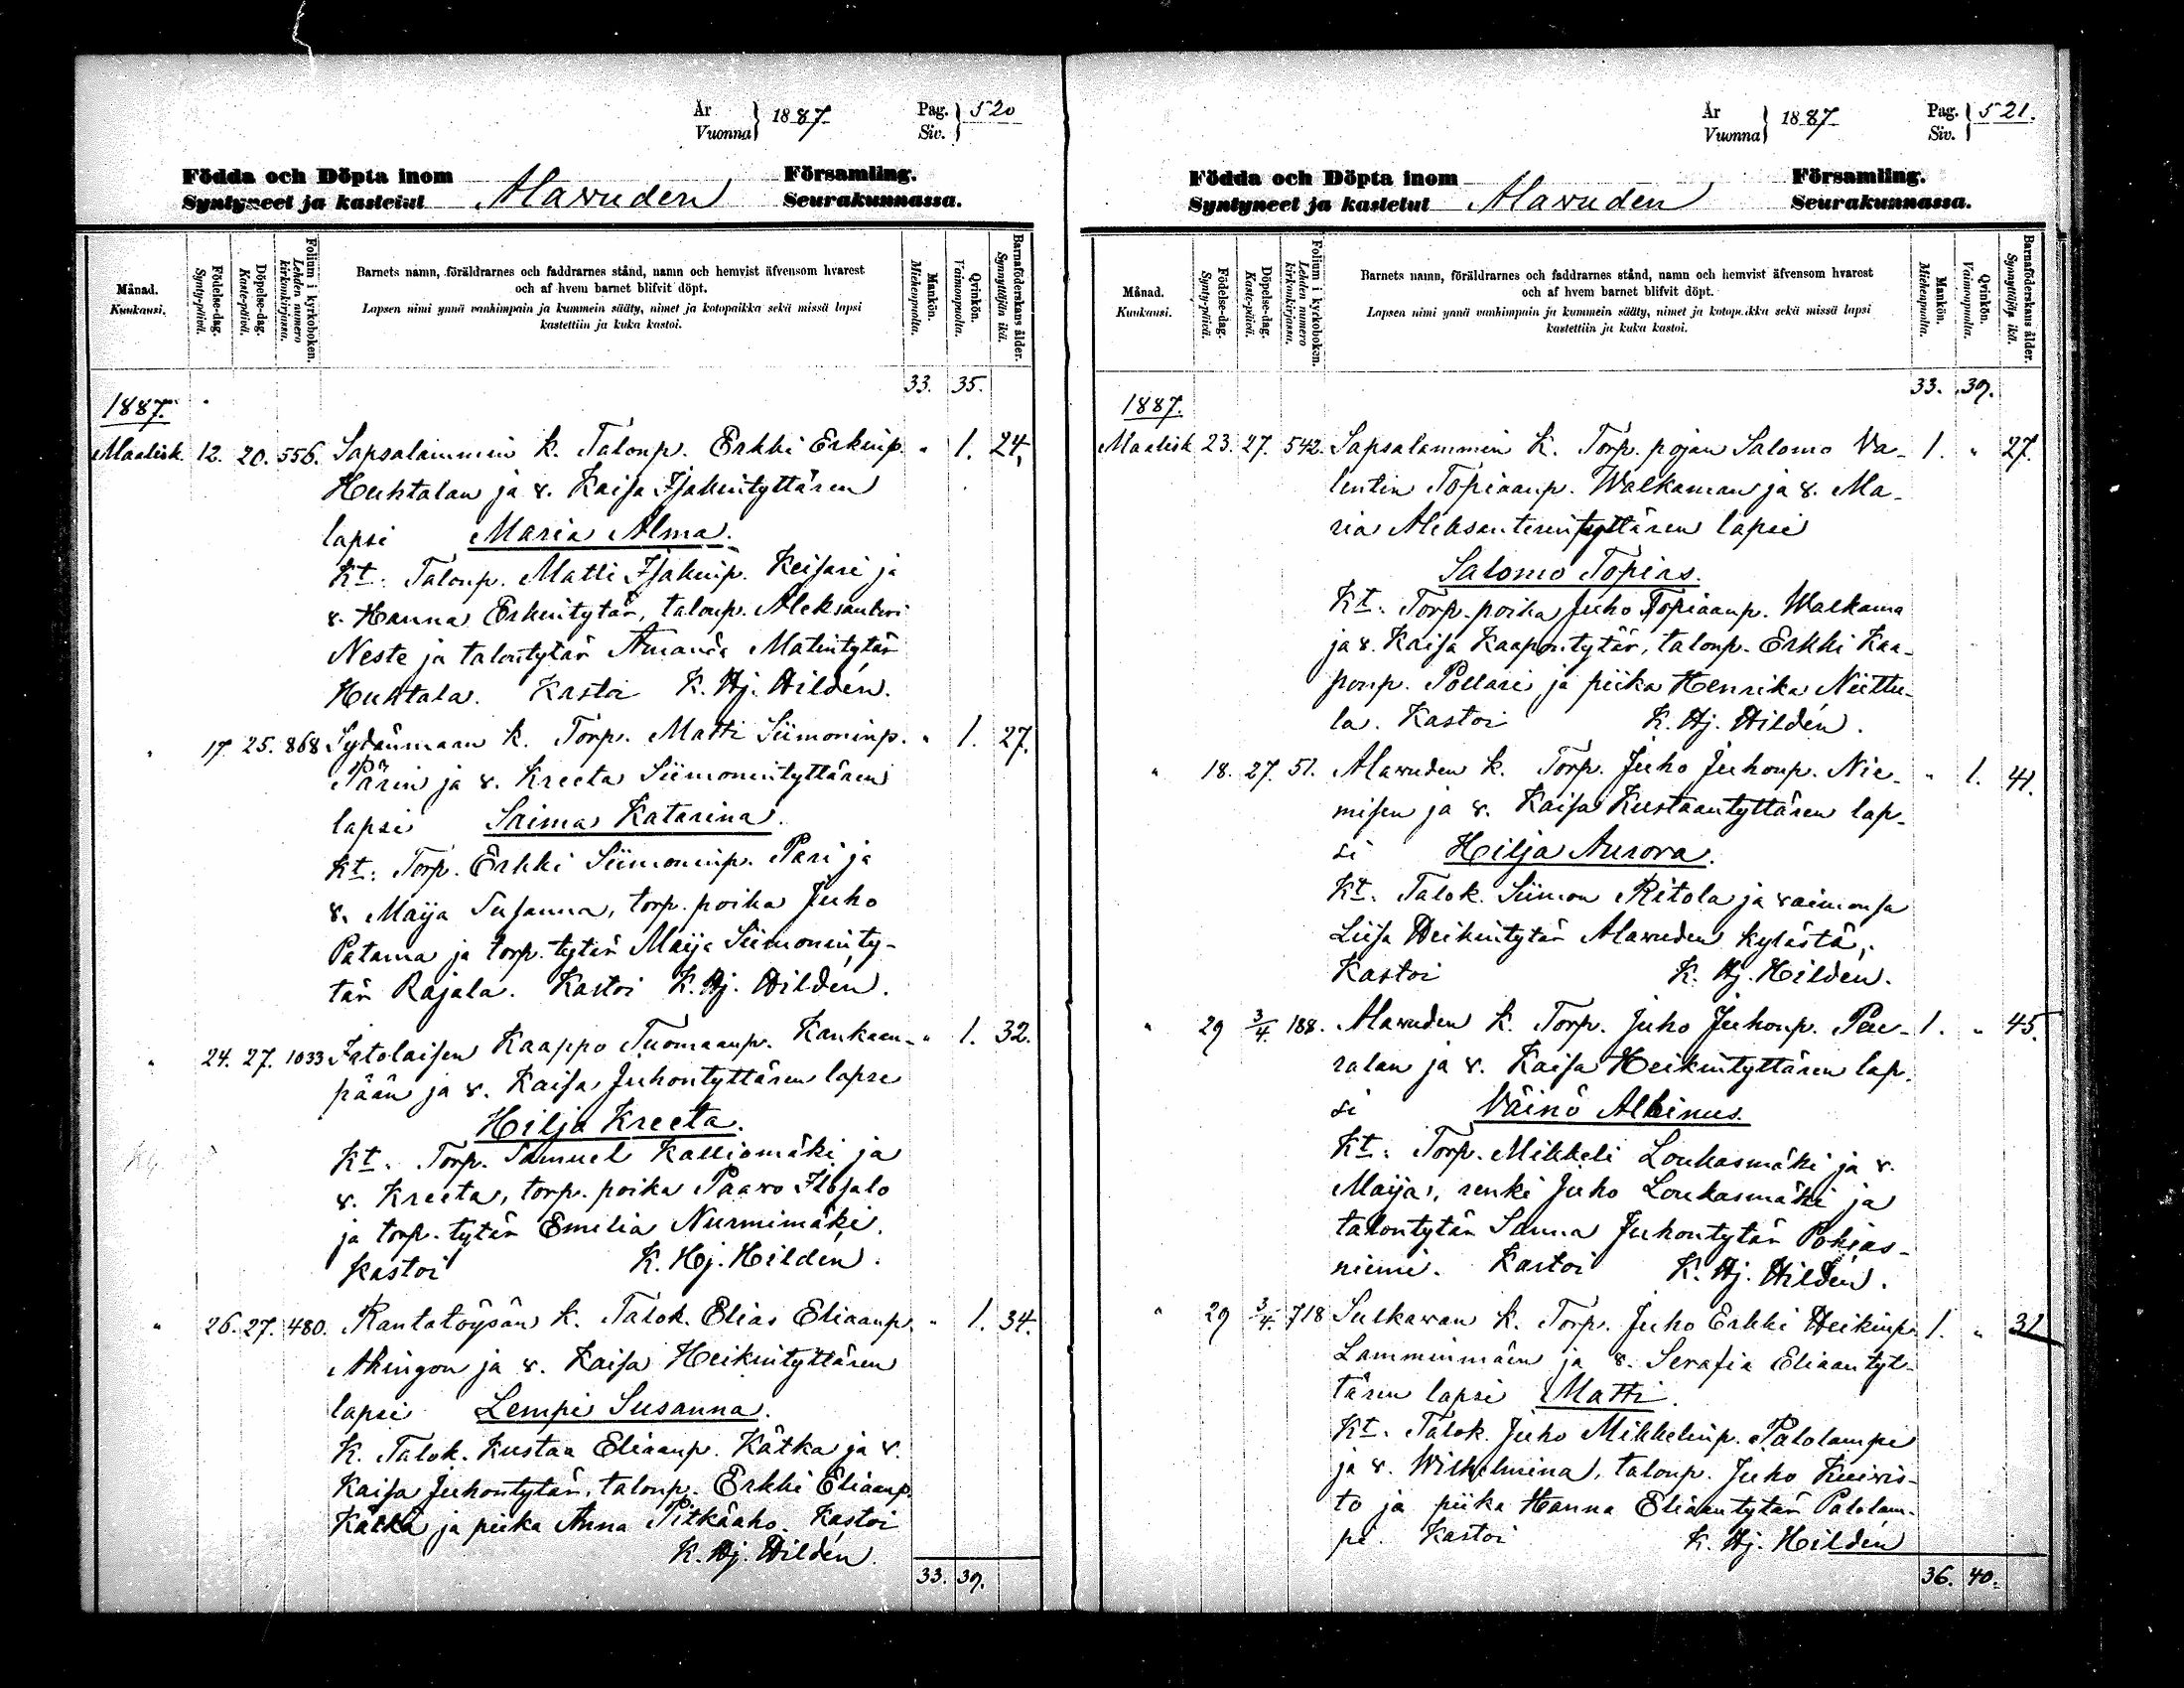 År
Vuonna } 1887. Pag.
Siv. } 520
Födda och Döpta inom
Syntyneet ja kastetut Alavuden Församling.
Seurakunnassa.
Månad.
Kuukausi.
Födelse-dag.
Synty-päivä.
Döpelse-dag.
Kaste-päivä.
Folium i kyrkoboken.
Lehden numero
kirkonkirjassa.
Barnets namn, föräldrarnes och faddrarnes stånd, namn och hemvist äfvensom hvarest
och af hvem barnet blifvit döpt.
Lapsen nimi ynnä vanhimpain ja kummein sääty, nimet ja kotopaikka sekä missä lapsi
kastettiin ja kuka kastoi.
Mankön.
Miehenpuolta.
Qvinkön.
Vaimonpuolta.
Barnaföderskans ålder.
Synnyttäjän ikä.
33. 35.
1887.
Maalisk. 12. 20. 556. Sapsalammin k. Talonp. Erkki Erkinp. " 1. 24.
Huhtalan ja v. Kaisa Isakintyttären
lapsi Maria Alma.
Kt. Talonp. Matti Isakinp. Keisari ja
v. Hanna Erkintytär, talonp. Aleksanteri
Neste ja talontytär Amanda Matintytär
Huhtala. Kastoi K. Hj. Hildén.
" 17. 25. 868 Sydänmaan k. Torp. Matti Siimoninp. " 1. 27.
Pärin ja v. Kreeta Siimonintyttären
lapsi Saima Katarina.
Kt. Torp. Erkki Siimoninp. Pari ja
v. Maija Susanna, torp. poika Juho
Patama ja torp. tytär Maija Siimoninty-
tär Rajala. Kastoi K. Hj. Hildén.
" 24. 27. 1033 Jätolaisen Kaappo Tuomaanp. Kankaan- " 1. 32.
pään ja v. Kaisa Juhontyttären lapsi
Hilja Kreeta.
Kt. Torp. Samuel Kalliomäki ja
v. Kreeta, torp. poika Paavo Ilosalo
ja torp. tytär Emilia Nurmimäki.
Kastoi K. Hj. Hildén.
" 26. 27. 480. Rantatöysän k. Talok. Elias Eliaanp. " 1. 34.
Akingon ja v. Kaisa Heikintyttären
lapsi Lempi Susanna.
K. Talok. Kustaa Eliaanp. Kätkä ja v.
Kaisa Juhontytär, talonp. Erkki Eliaanp.
Kätkä ja piika Anna Pitkäaho. Kastoi
K. Hj. Hildén.
33. 39.
År
Vuonna } 1887 Pag.
Siv. } 521.
Födda och Döpta inom
Syntyneet ja kastetut Alavuden Församling.
Seurakunnassa.
Månad.
Kuukausi.
Födelse-dag.
Synty-päivä.
Döpelse-dag.
Kaste-päivä.
Folium i kyrkoboken.
Lehden numero
kirkonkirjassa.
Barnets namn, föräldrarnes och faddrarnes stånd, namn och hemvist äfvensom hvarest
och af hvem barnet blifvit döpt.
Lapsen nimi ynnä vanhimpain ja kummein sääty, nimet ja kotopaikka sekä missä lapsi
kastettiin ja kuka kastoi.
Mankön.
Miehenpuolta.
Qvinkön.
Vaimonpuolta.
Barnaföderskans ålder.
Synnyttäjän ikä.
33. 39.
1887.
Maalisk 23. 27. 542. Sapsalammin k. Torp. pojan Salomo Va- 1. " 27.
lentin Topiaanp. Walkaman ja v. Ma-
ria Aleksanterintyttären lapsi
Salomo Topias.
Kt. Torp. poika Juho Topiaanp. Walkama
ja v. Kaisa Kaapontytär, talonp. Erkki Kaa-
ponp. Pollari ja piika Henrika Niittu-
la. Kastoi K. Hj. Hildén.
" 18. 27. 51. Alavuden k. Torp. Juho Juhonp. Nie- " 1. 41.
misen ja v. Kaisa Kustaantyttären lap-
si Hilja Aurora.
Kt. Talok. Siimon Ritola ja vaimonsa
Liisa Heikintytär Alavuden kylästä.
Kastoi K. Hj. Hildén.
" 29 3/4. 188. Alavuden k. Torp. Juho Juhonp. Peu- 1. " 45.
ralan ja v. Kaisa Heikintyttären lap-
si Väinö Albinus.
Kt. Torp. Mikkeli Loukasmäki ja v.
Maija, renki Juho Loukasmäki ja
talontytär Sanna Juhontytär Pohjas-
niemi. Kastoi K. Hj. Hildén.
" 29 3/4. 718 Sulkavan k. Torp. Juho Erkki Heikinp. 1. " 31
Lamminmäen ja v. Serafia Eliaantyt-
tären lapsi Matti.
Kt. Talok. Juho Mikkelinp. Palolampi
ja v. Wilhelmina, talonp. Juho Kuivis-
to ja piika Hanna Eliaantytär Palolam-
pi. Kastoi K. Hj. Hildén
36. 40.